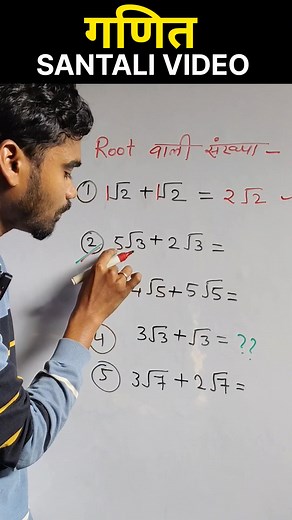 गणित
SANTALI VIDEO
Root वाली संख्या -
① 1√2 + 1√2 = 2√2
② 5√3 + 2√3 =
4√5 + 5√5 =
④ 3√3 + √3 = ??
⑤ 3√7 + 2√7 =